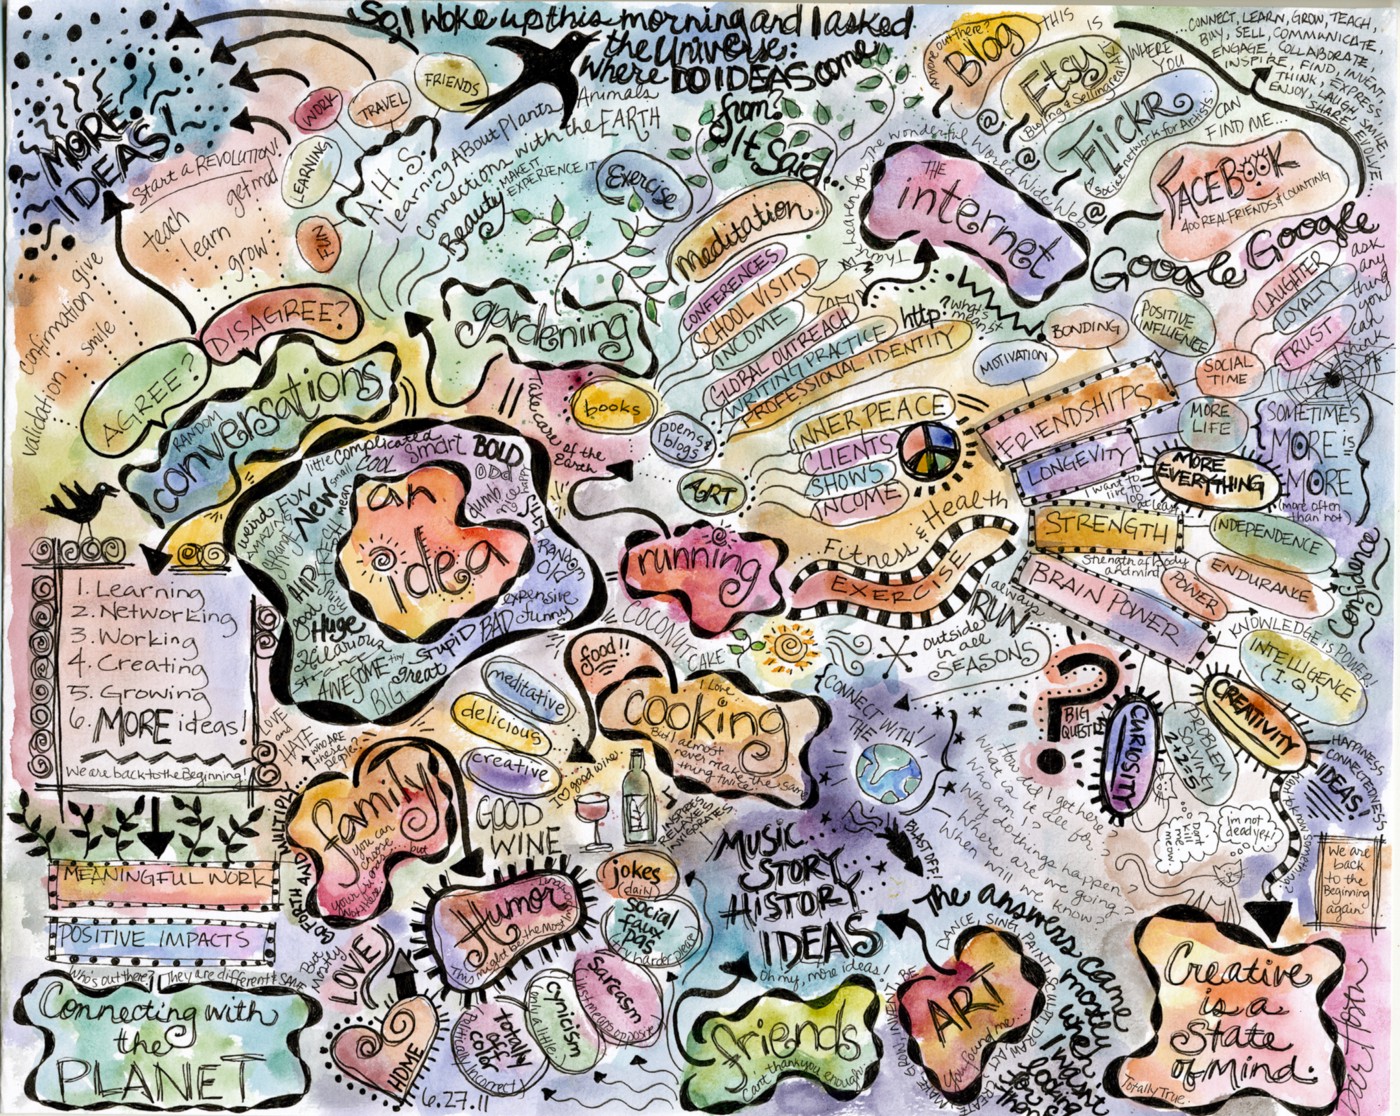 So, I woke up this morning and I asked
the Universe:
Where DO IDEAS come
from?
It Said...
MORE
IDEAS!
WORK
TRAVEL
FRIENDS
LEARNING
FUN
Start a REVOLUTION!
get mad
teach
learn
grow
give
confirmation
smile
validation
A.H.S.
Learning About Plants Animals
Connections with the EARTH
Beauty
MAKE IT
EXPERIENCE IT
Exercise
DISAGREE?
AGREE?
RANDOM
conversations
gardening
Take care of the
Earth
books
poems &
blogs
ART
Meditation
CONFERENCES
SCHOOL VISITS
INCOME
GLOBAL OUTREACH
WRITING PRACTICE
PROFESSIONAL IDENTITY
INNER PEACE
CLIENTS
SHOWS
INCOME
Anyone out there?
Blog
THIS
IS
WHERE
YOU
CAN
FIND ME...
Etsy
Flickr
A social network for Artists
FACEBOOK
400 REAL FRIENDS & COUNTING
CONNECT, LEARN, GROW, TEACH,
BUY, SELL, COMMUNICATE,
ENGAGE, COLLABORATE,
INSPIRE, FIND, INVENT
THINK, EXPRESS
ENJOY, LAUGH, SMILE
SHARE
EVOLVE
@
@
@
THE
internet
wonderful World Wide Web
Google Google
ask
any
thing
you
can
think
http:
? what's it
meant
LAUGHTER
LOYALTY
TRUST
BONDING
POSITIVE
INFLUENCE
MOTIVATION
SOCIAL
TIME
FRIENDSHIPS
LONGEVITY
I want to
live
MORE
LIFE
MORE
EVERYTHING
SOMETIMES
MORE is
MORE
(more often
than not)
STRENGTH
Strength of body
and mind
INDEPENDENCE
ENDURANCE
POWER
Confidence
BRAIN POWER
KNOWLEDGE is POWER!
INTELLIGENCE
(I.Q.)
CREATIVITY
PROBLEM
SOLVING
2+2=5
CURIOSITY
?
BIG
QUESTION
HAPPINESS
CONNECTEDNESS
IDEAS!
Fitness & Health
EXERCISE
always
RUN
outside
in all
SEASONS
running
COCONUT
CAKE
an
idea
little
complicated
COOL
smart
BOLD
ODD
dumb
nice
happy
SILLY
RANDOM
OLD
expensive
funny
BAD
Stupid
tiny
great
BIG
AWESOME
Hilarious
Huge
good
HIP
weird
FUN
New!
small
mean
1. Learning
2. Networking
3. Working
4. Creating
5. Growing
6. MORE ideas!
We are back to the Beginning!
LOVE
and
HATE
WHO ARE
these
people?
food!!
I Love
cooking
But I almost
never make the same
thing twice
meditative
delicious
creative
I ♡ good wine!
GOOD
WINE
family
you can
choose
GO FORTH AND MULTIPLY
MEANINGFUL WORK
POSITIVE IMPACTS
Who's out there?
They are different & SAME
Connecting with
the
PLANET
LOVE
HOME
6.27.11
Humor
This might be the most
jokes
daily
social
faux
pas
try harder please
Sarcasm
just means opposite
cynicism
only a little
totally
off
color
Politically Incorrect
CONNECT WITH
THE
MUSIC
STORY
HISTORY
IDEAS
Oh my, more ideas!
BLAST OFF!
How did I get here?
What is it all for?
Why do things happen?
Where are we going?
When will we know?
friends
can't thank you enough
ART
You found me...
DANCE, SING, PAINT
The answers came
mostly
when
I wasn't
looking
for
them
Don't
kill me
meow
i'm not
dead yet!
We are
back
to the
Beginning
again
Creative
is a
State
of Mind.
Totally True.